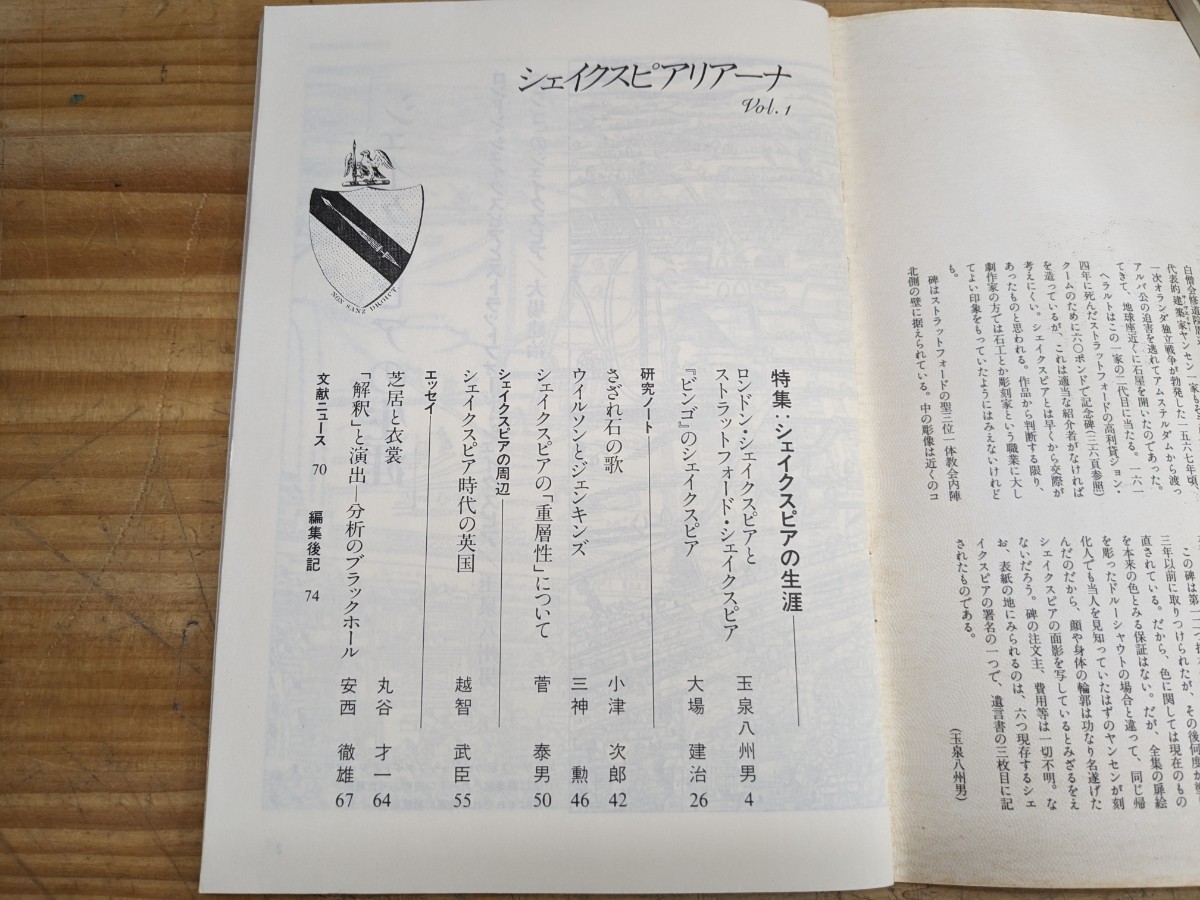 シェイクスピアリアーナ
Vol.1
NON SANZ DROICT.
特集：シェイクスピアの生涯
ロンドン・シェイクスピアと
ストラットフォード・シェイクスピア 玉泉八州男 4
『ビンゴ』のシェイクスピア 大場 建治 26
研究ノート
さざれ石の歌 小津 次郎 42
ウイルソンとジェンキンズ 三神 勲 46
シェイクスピアの「重層性」について 菅 泰男 50
シェイクスピアの周辺
シェイクスピア時代の英国 越智 武臣 55
エッセイ
芝居と衣裳 丸谷 才一 64
「解釈」と演出―分析のブラックホール 安西 徹雄 67
文献ニュース 70 編集後記 74
代表的建築家ヤンセン一家も
一次オランダ独立戦争が勃発した一五六七年頃、
アルバ公の迫害を逃れてアムステルダムから渡っ
てきて、地球座近くに石屋を開いたのであった。
ヘラルトはこの一家の二代目に当たる。一六一
四年に死んだストラットフォードの高利貸ジョン・
クームのために六〇ポンドで記念碑（三六頁参照）
を造っているが、これは適当な紹介者がなければ
考えにくい。シェイクスピアとは早くから交際が
あったものと思われる。作品から判断する限り、
劇作家の方では石工とか彫刻家という職業に大し
てよい印象をもっていたようにはみえないけれど
も。
碑はストラットフォードの聖三位一体教会内陣
北側の壁に据えられている。中の彫像は近くのコ
この碑は第一二つ折
三年以前に取りつけられたが、その後何度か
直されている。だから、色に関しては現在のもの
を本来の色とみる保証はない。だが、全集の扉絵
を彫ったドルーシャウトの場合と違って、同じ帰
化人でも当人を見知っていたはずのヤンセンが刻
んだのだから、顔や身体の輪郭は功なり名遂げた
シェイクスピアの面影を写しているとみざるをえ
ないだろう。碑の注文主、費用等は一切不明。な
お、表紙の地にみられるのは、六つ現存するシェ
イクスピアの署名の一つで、遺言書の三枚目に記
されたものである。
（玉泉八州男）